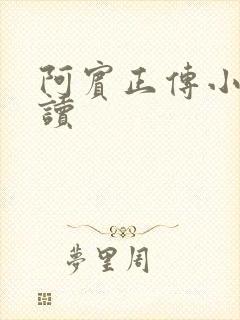 阿賓正傳小
讀
夢里周